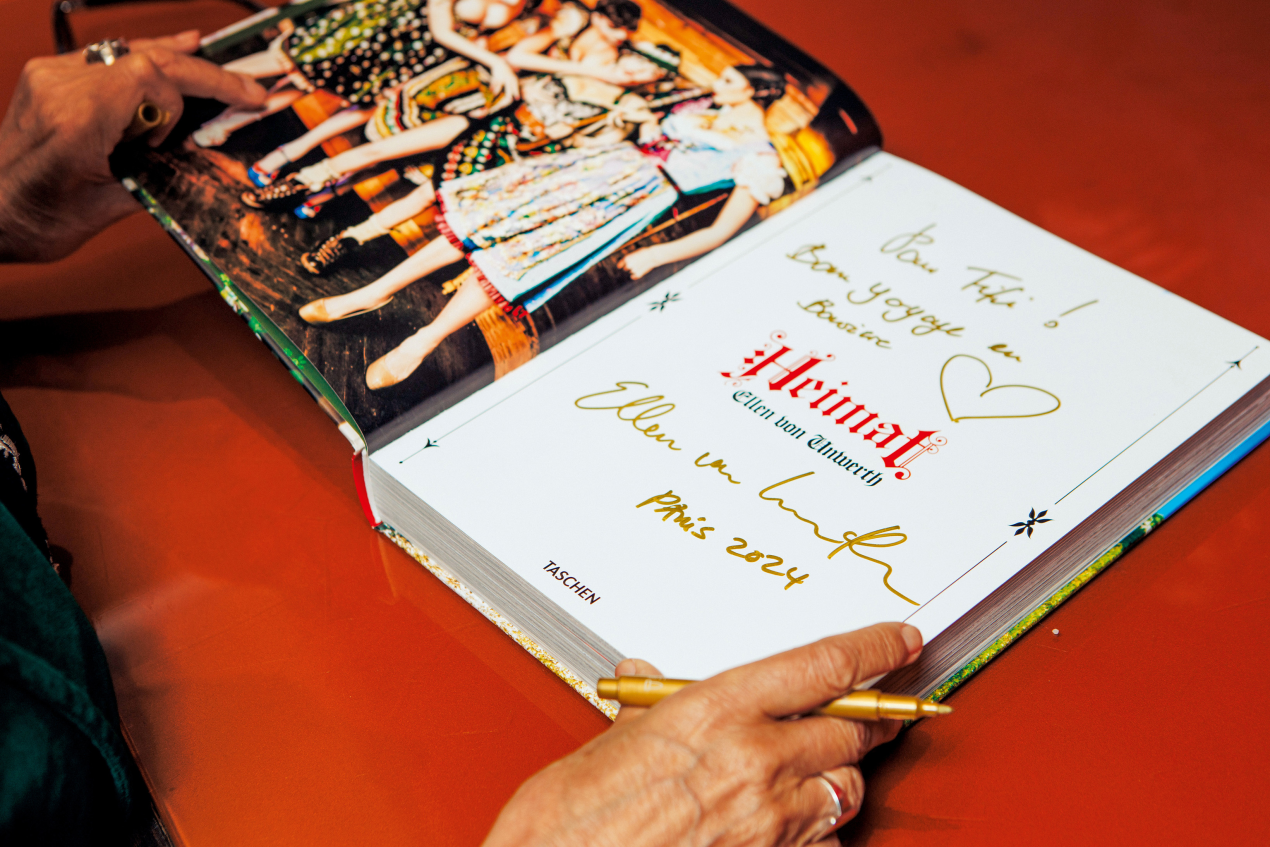 Pour Fifi !
Bon yoyage en
Baviere
Heimat
Ellen von Unwerth
Ellen von Unwerth
PARIS 2024
TASCHEN